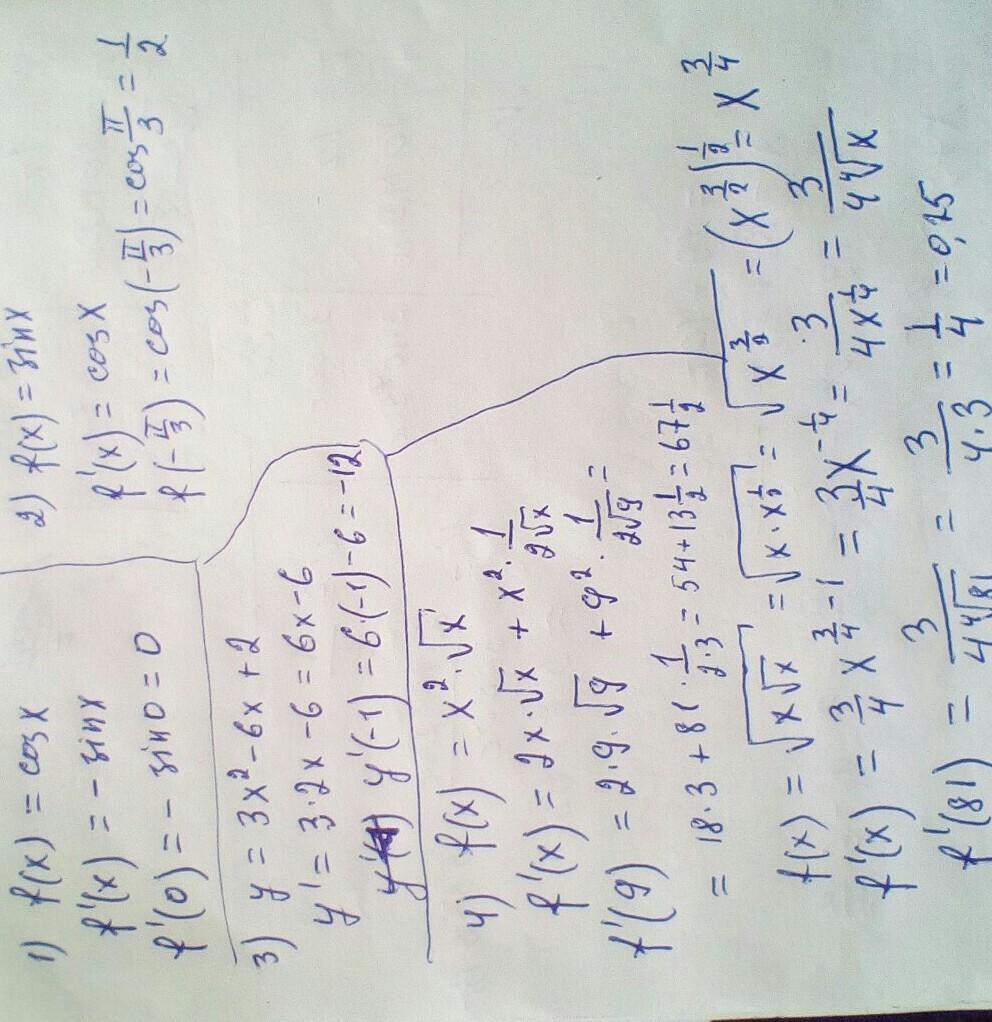 1) f(x) = cos x
f'(x) = - sin x
f'(0) = - sin 0 = 0
2) f(x) = sin x
f'(x) = cos x
f(-π/3) = cos(-π/3) = cos π/3 = 1/2
3) y = 3x² - 6x + 2
y' = 3·2x - 6 = 6x - 6
y'(-1) = 6·(-1) - 6 = -12
4) f(x) = x²·√x
f'(x) = 2x·√x + x²·1/(2√x)
f'(9) = 2·9·√9 + 9²·1/(2√9) =
= 18·3 + 81·1/(2·3) = 54 + 13 1/2 = 67 1/2
f(x) = √(x√x) = √(x·x^(1/2)) = √(x^(3/2)) = (x^(3/2))^(1/2) = x^(3/4)
f'(x) = 3/4 x^(3/4 - 1) = 3/4 x^(-1/4) = 3/(4x^(1/4)) = 3/(4 ⁴√x)
f'(81) = 3/(4 ⁴√81) = 3/(4·3) = 1/4 = 0,25